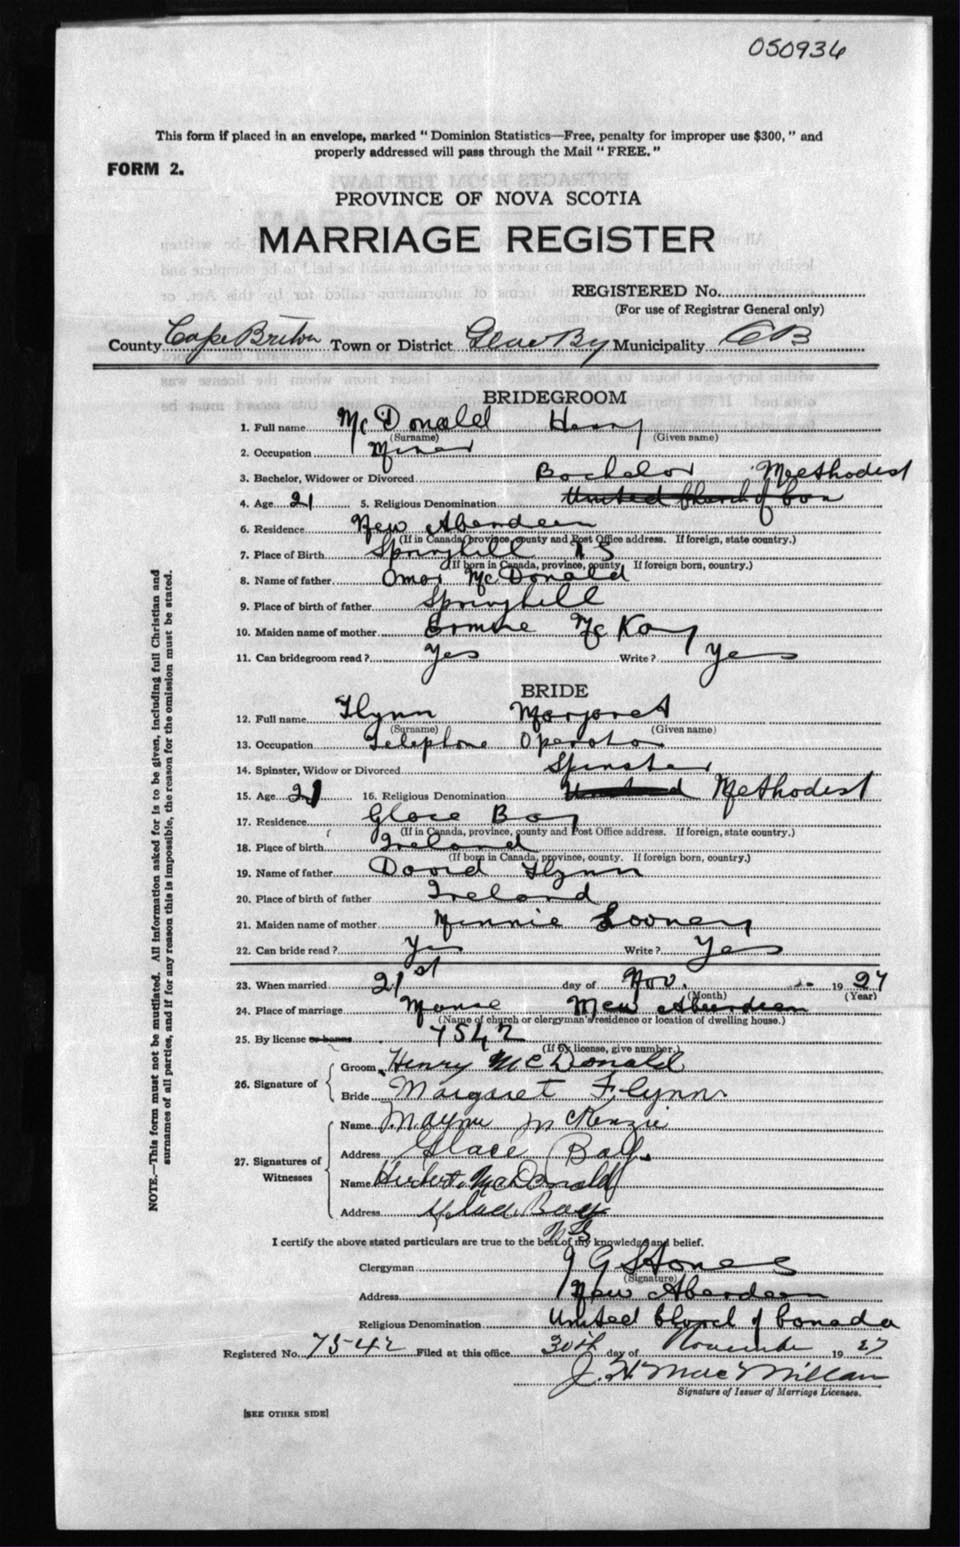 050936
This form if placed in an envelope, marked "Dominion Statistics—Free, penalty for improper use $300," and
properly addressed will pass through the Mail "FREE."
FORM 2.
PROVINCE OF NOVA SCOTIA
MARRIAGE REGISTER
REGISTERED No.
(For use of Registrar General only)
County Cape Briton Town or District Glace By Municipality C B
BRIDEGROOM
1. Full name McDonald Henry
(Surname) (Given name)
2. Occupation Miner
3. Bachelor, Widower or Divorced Bachelor Methodist
4. Age 21 5. Religious Denomination United Church of Can
6. Residence New Aberdeen
(If in Canada, province, county and Post Office address. If foreign, state country.)
7. Place of Birth Springhill N S
(If born in Canada, province, county. If foreign born, country.)
8. Name of father Omar McDonald
9. Place of birth of father Springhill
10. Maiden name of mother McKay
11. Can bridegroom read? Yes Write? Yes
BRIDE
12. Full name Flynn Margaret
(Surname) (Given name)
13. Occupation Telephone Operator
14. Spinster, Widow or Divorced Spinster
15. Age 21 16. Religious Denomination United Methodist
17. Residence Glace Bay
(If in Canada, province, county and Post Office address. If foreign, state country.)
18. Place of birth Ireland
(If born in Canada, province, county. If foreign born, country.)
19. Name of father David Flynn
20. Place of birth of father Ireland
21. Maiden name of mother Minnie Looney
22. Can bride read? Yes Write? Yes
23. When married 21st day of Nov. 1927
(Month) (Year)
24. Place of marriage Manse New Aberdeen
(Name of church or clergyman's residence or location of dwelling house.)
25. By license or banns 7542
(If by license, give number.)
26. Signature of
Groom Henry McDonald
Bride Margaret Flynn.
27. Signatures of Witnesses
Name Mayme McKenzie
Address Glace Bay.
Name Herbert McDonald
Address Glace Bay
N S
I certify the above stated particulars are true to the best of my knowledge and belief.
Clergyman J G Stones
(Signature)
Address New Aberdeen
Religious Denomination United Church of Canada
Registered No. 7542 Filed at this office 30th day of November 1927
J. H. MacMillan
Signature of Issuer of Marriage Licenses.
[SEE OTHER SIDE]
NOTE.—This form must not be mutilated. All information asked for is to be given, including full Christian and
surnames of all parties, and if for any reason this is impossible, the reason for the omission must be stated.